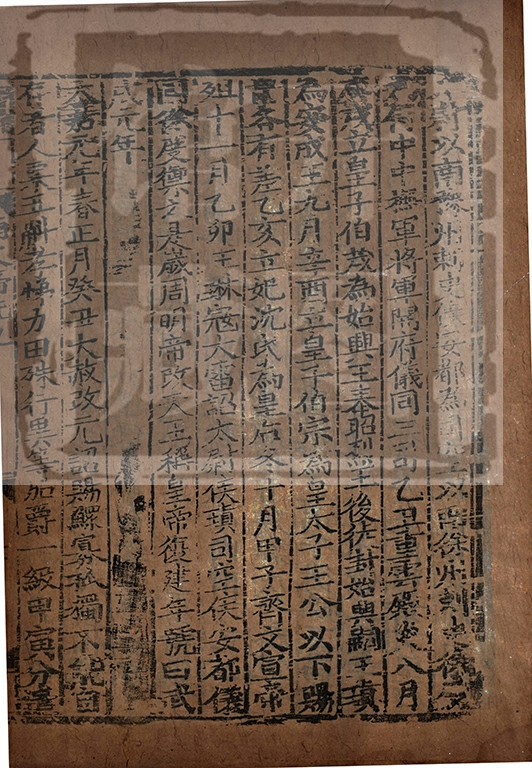 以南豫州刺史侯安都為司空以南徐州刺史侯
中中撫軍將軍開府儀同三司乙丑重雲殿災八月
立皇子伯茂為始興王奉昭烈王後徙封始興嗣王頊
為安成王九月辛酉立皇子伯宗為皇太子王公以下賜
帛各有差乙亥立妃沈氏為皇后冬十月甲子齊文宣帝
殂十一月乙卯王琳寇大雷詔太尉侯瑱司空侯安都儀
同徐度禦之是歲周明帝改天王稱皇帝復建年號曰武
成元年
天嘉元年春正月癸丑大赦改元詔賜鰥寡孤獨不能自
存者人粟五斛孝悌力田殊行異等加爵一級甲寅分遣